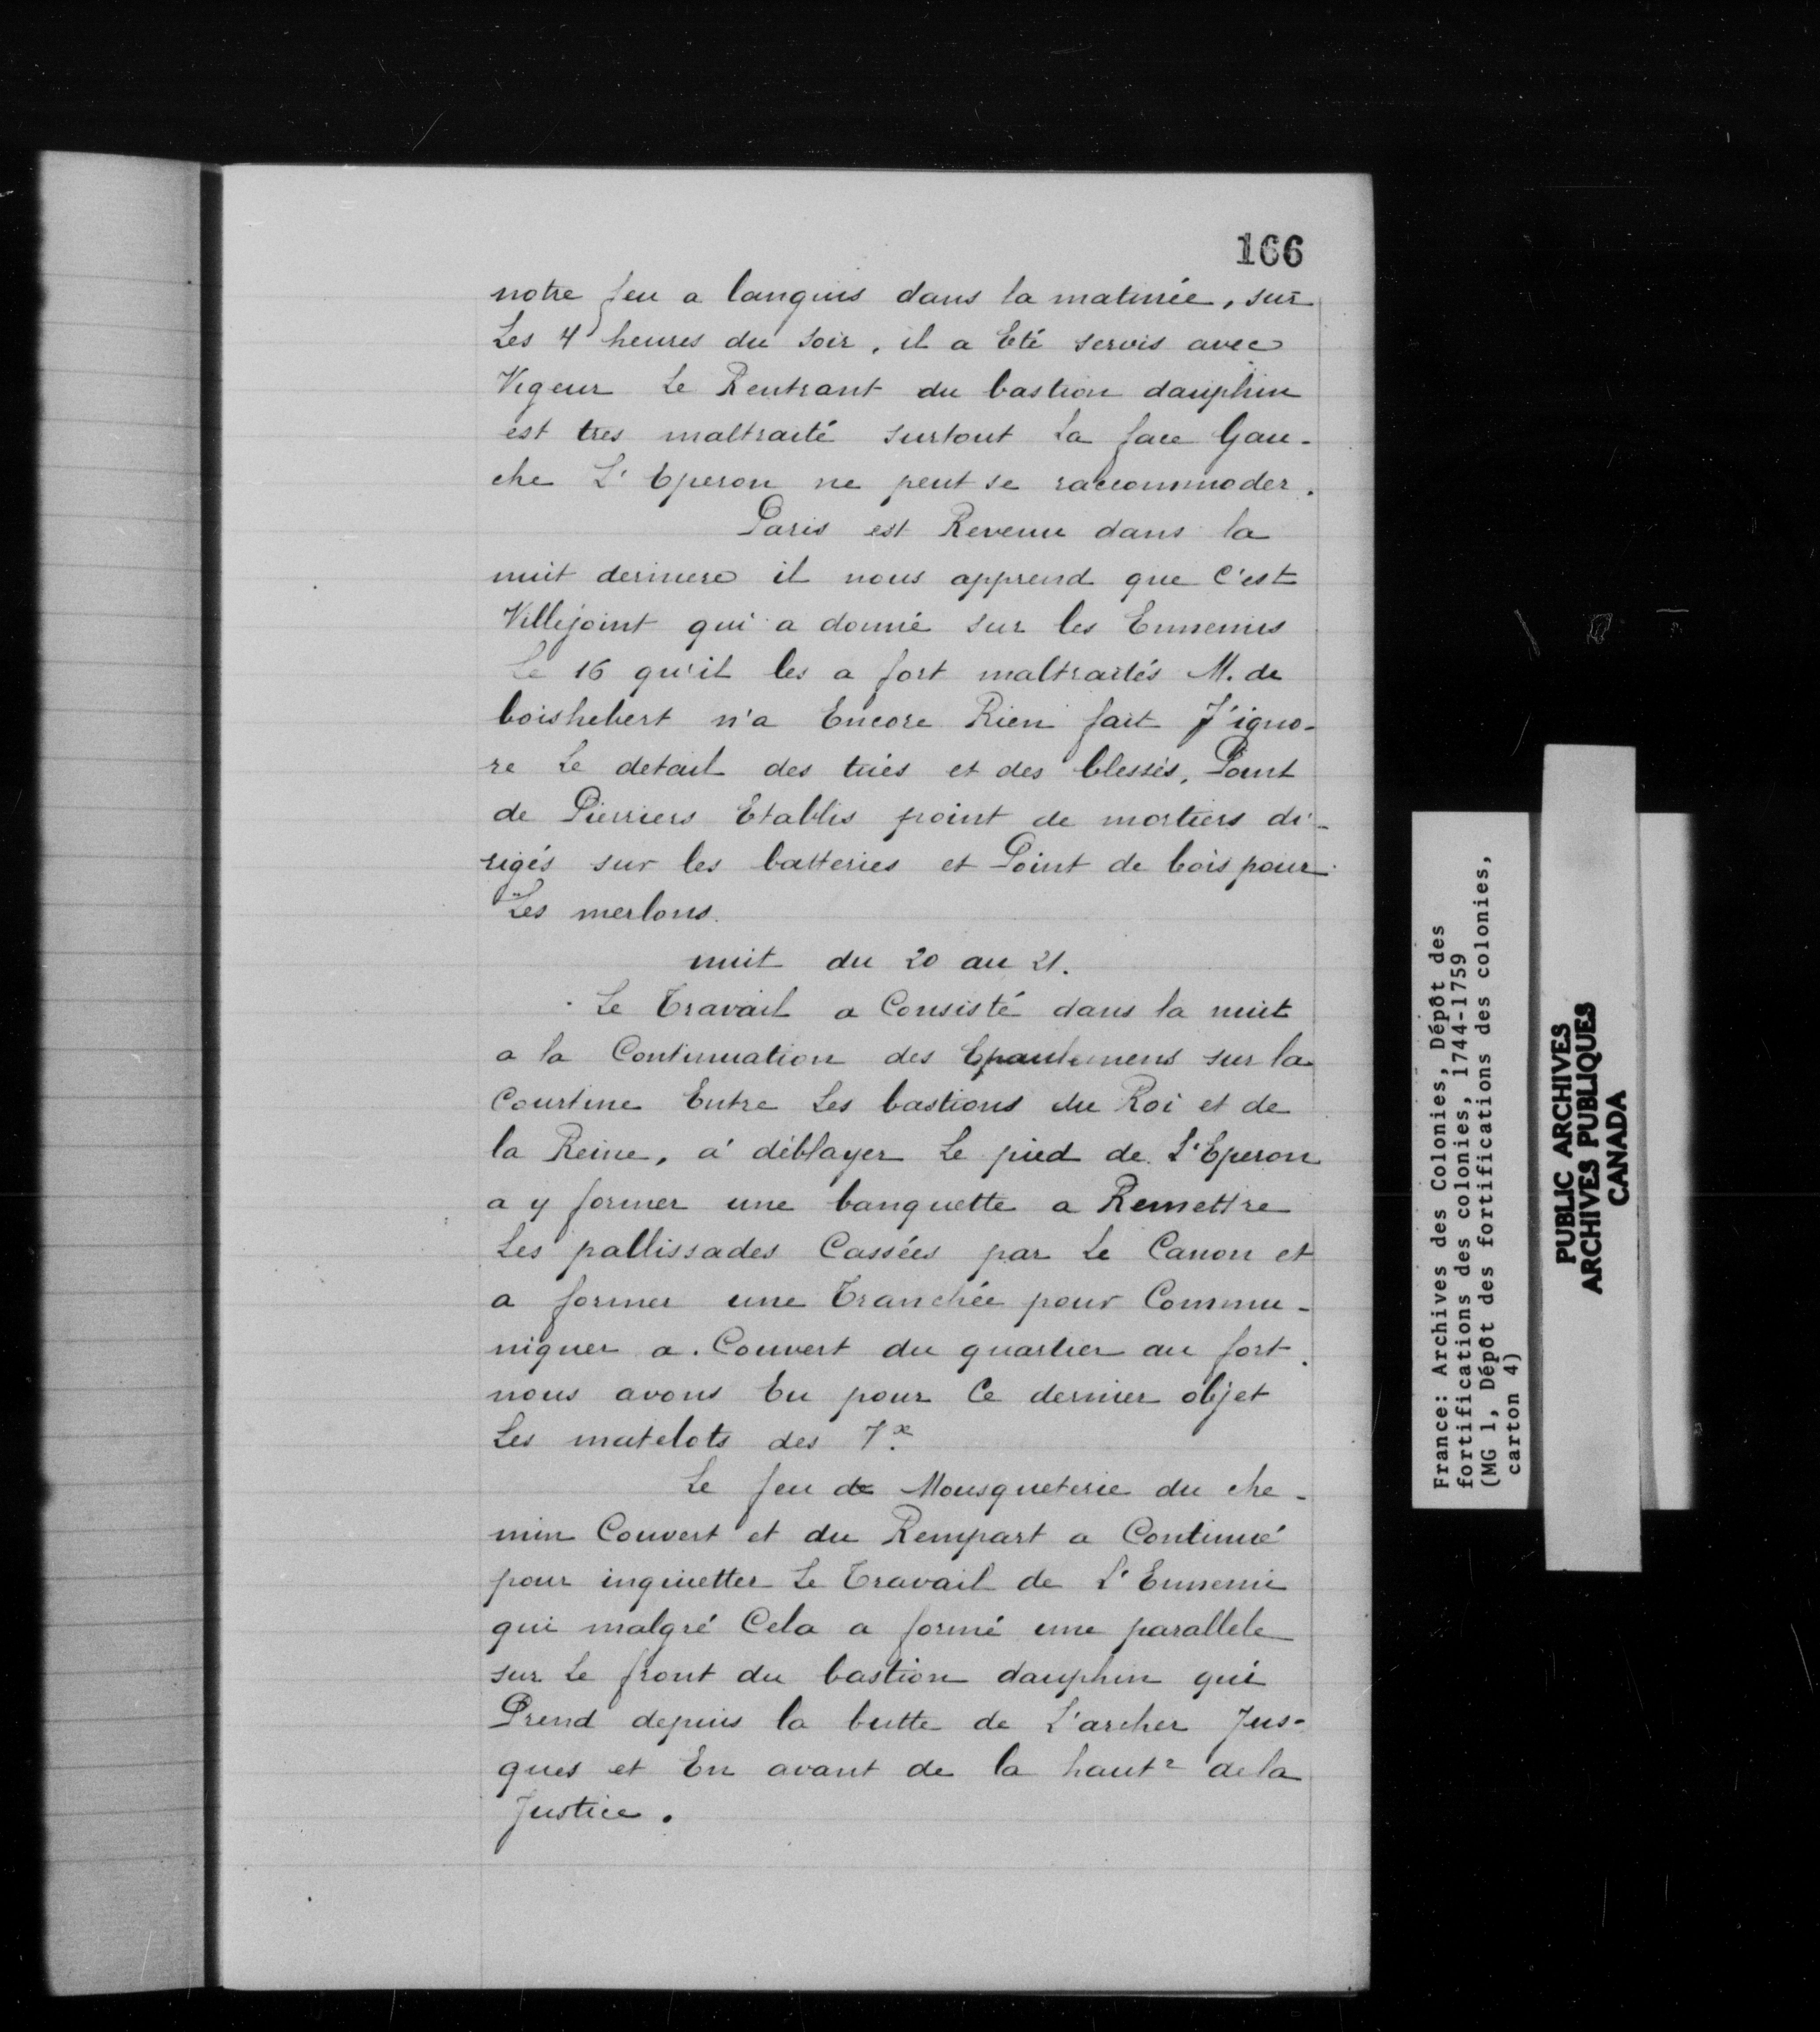 166
notre feu a languis dans la matinée, sur
Les 4 heures du soir, il a Eté servis avec
Vigeur Le Rentrant du bastion dauphin
est tres maltraité surtout La face Gau-
che L'Eperon ne peut se raccommoder.
Paris est Revenu dans la
nuit derniere il nous apprend que C'est
Villejoint qui a donné sur les Ennemis
le 16 qu'il les a fort maltraités M. de
boishebert n'a Encore Rien fait J'igno-
re Le detail des tués et des blessés, Point
de Pierriers Etablis point de mortiers di-
rigés sur les batteries et Point de bois pour
Les merlons.
nuit du 20 au 21.
Le Travail a Consisté dans la nuit
a la Continuation des Epaulemens sur la
Courtine Entre Les bastions du Roi et de
la Reine, à déblayer Le pied de L'Eperon
a y former une banquette a Remettre
Les pallissades Cassées par Le Canon et
a former une Tranchée pour Commu-
niquer a Couvert du quartier au fort.
nous avons Eu pour Ce dernier objet
Les matelots des 7.x
Le feu de Mousqueterie du che-
min Couvert et du Rempart a Continué
pour inquietter Le Travail de L'Ennemi
qui malgré Cela a formé une parallele
sur Le front du bastion dauphin qui
Prend depuis la butte de L'archer Jus-
ques et En avant de la hautr de la
Justice.
France: Archives des Colonies, Dépôt des
fortifications des colonies, 1744-1759
(MG 1, Dépôt des fortifications des colonies,
carton 4)
PUBLIC ARCHIVES
ARCHIVES PUBLIQUES
CANADA